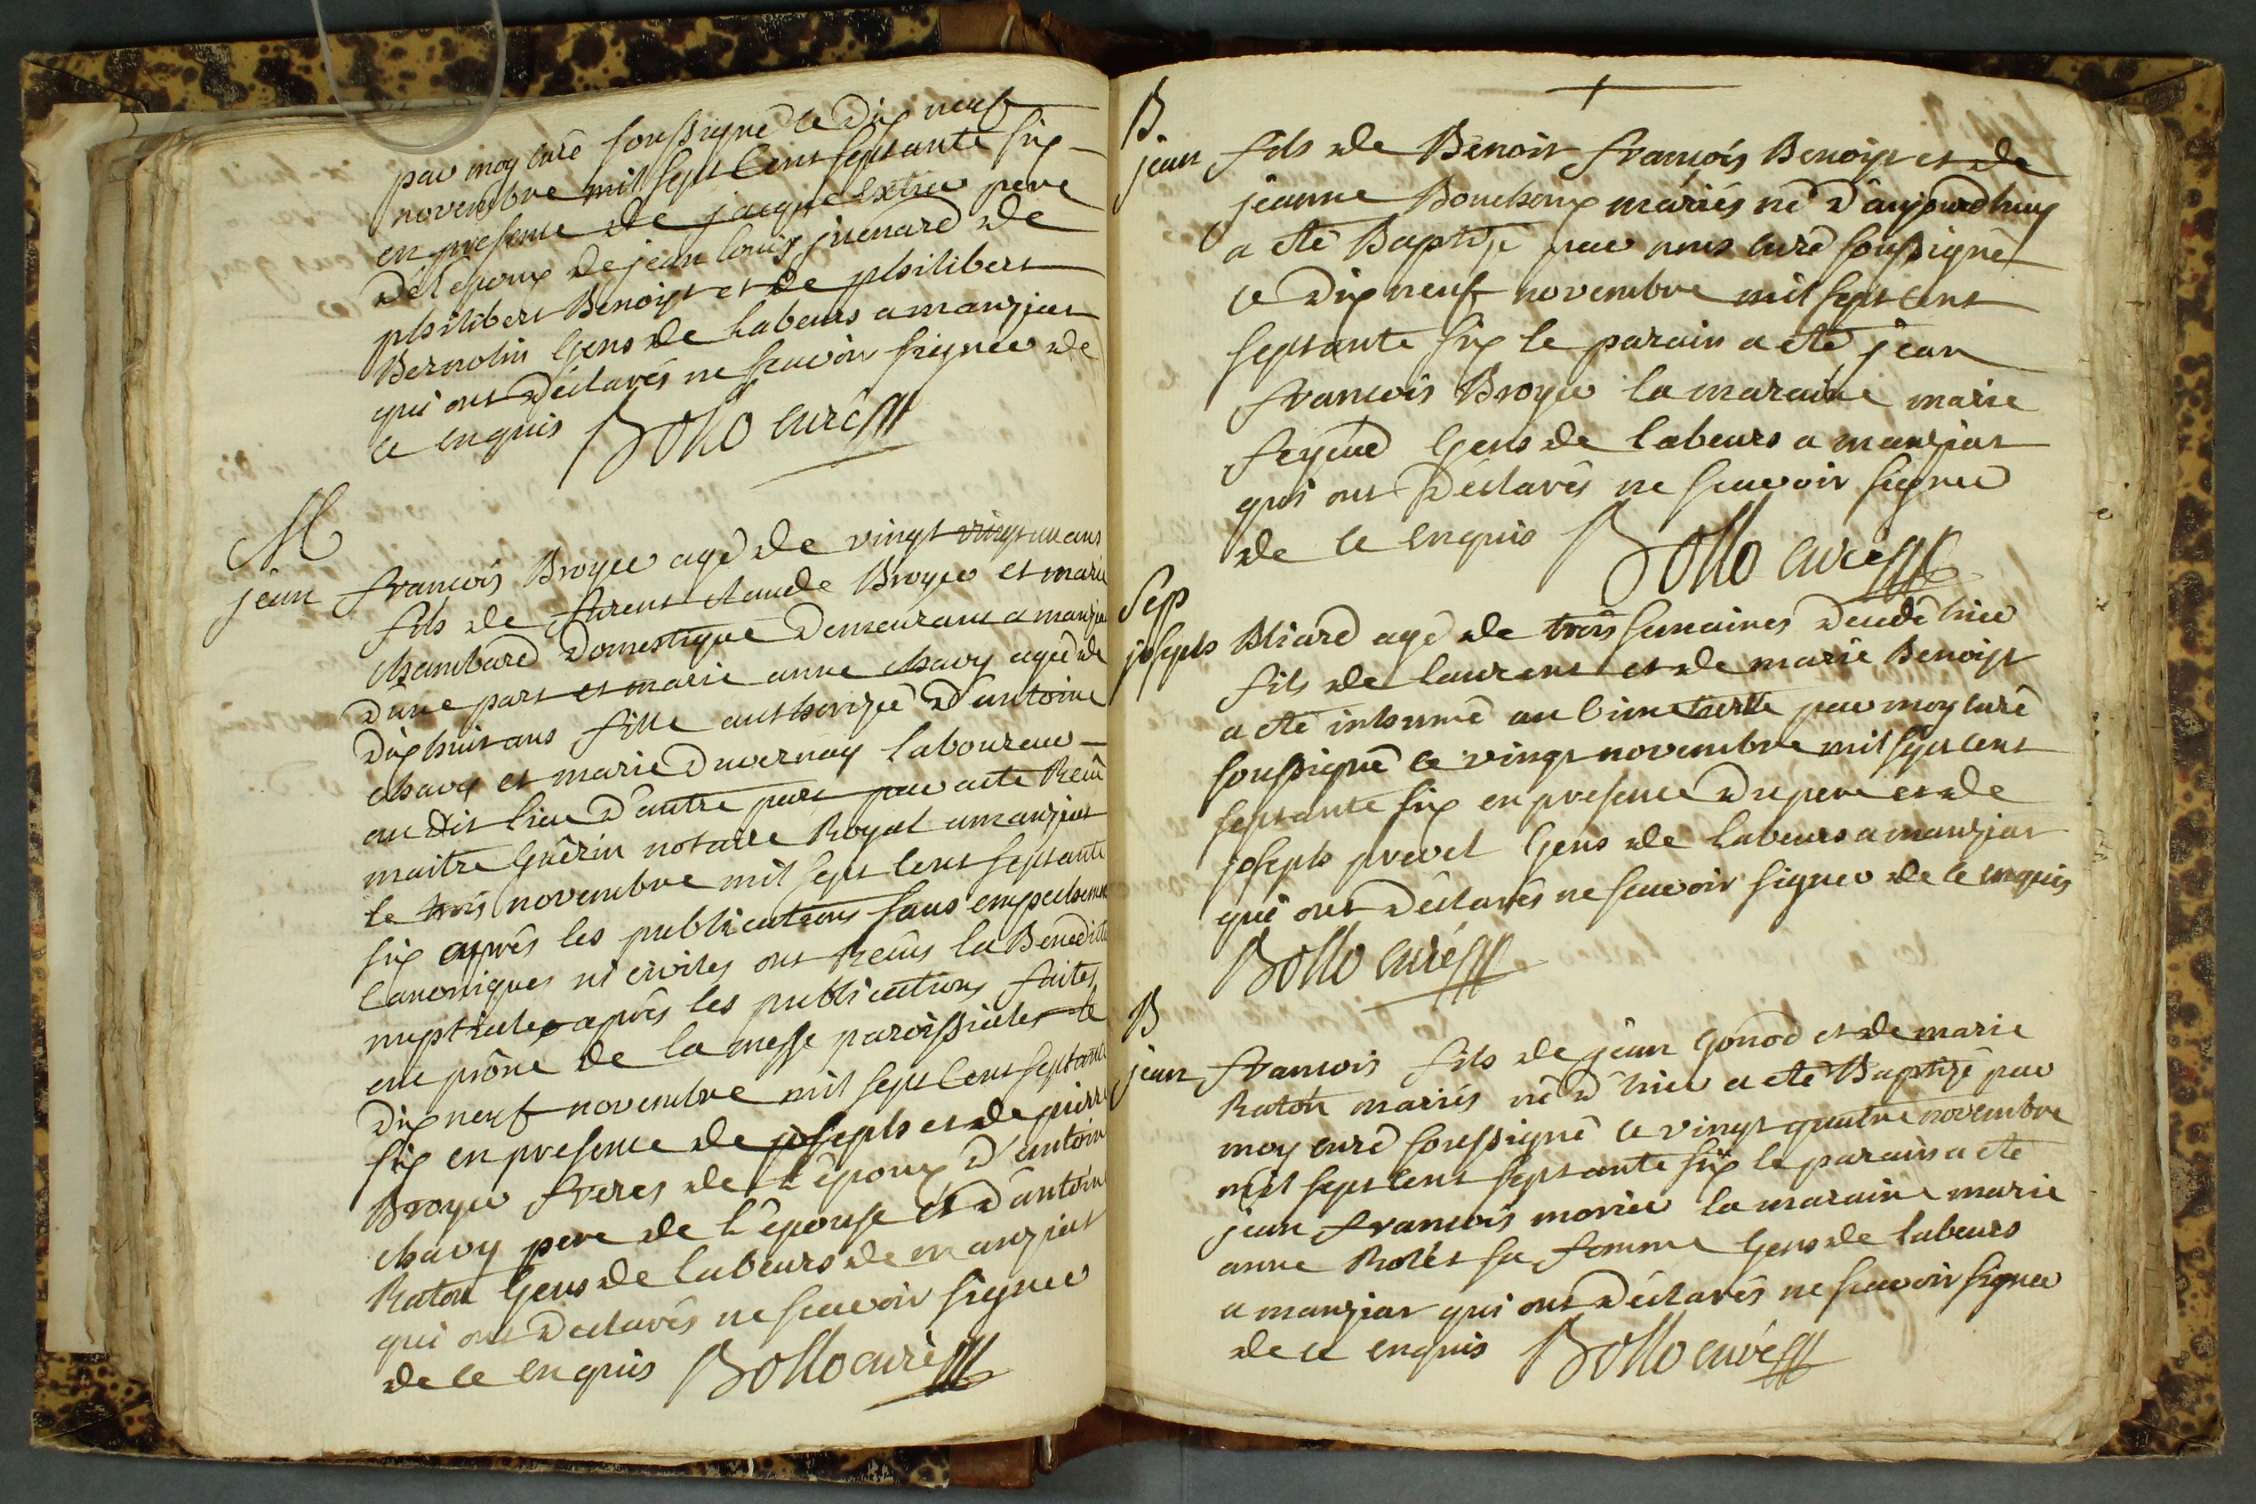 par moy curé soussigné ce dix neuf
novembre mil sept cent septante six
en presence de jacque pere
de l'epoux de jean louis juenard de
philibert Benoist et de philibert
Bernolin gens de labeurs a manziat
qui ont déclarés ne scavoir signer de
ce enquis Bollo curé
M
jean françois Broyer agé de vingt vingt un ans
fils de claude Broyer et marie
chambard domestique demeurant a manziat
d'une part et marie anne chavy agée de
dix huit ans fille authorizée d'antoine
chavy et marie duvernay laboureur
au dit lieu d'autre part par acte Reçu
maitre Guérin notaire Royal a manziat
le trois novembre mil sept cent septante
six après les publications sans empechement
canoniques ni civiles ont Reçus la Benedict
nuptiale après les publications faites
au prône de la messe paroissiale le
dix neuf novembre mil sept cent septante
six en presence de joseph et de pierre
Broyer freres de l'époux d'antoine
chavy pere de l'épouse et d'antoine
Raton gens de labeurs de manziat
qui ont declarés ne scavoir signer
de ce enquis Bollo curé
B.
jean fils de Benoit françois Benoist et de
jeanne Bouchoux mariés né d'aujourdhuy
a été Baptisé par nous curé soussigné
ce dix neuf novembre mil sept cent
septante six le parain a été jean
françois Broyer la maraine marie
gens de labeurs a manziat
qui ont déclarés ne scavoir signer
de ce enquis Bollo curé
Sep
joseph Bliard agé de trois semaines decedé hier
fils de laurent et de marie Benoist
a été inhumé au cimetierre par moy curé
soussigné ce vingt novembre mil sept cent
septante six en presence du pere et de
joseph prevel gens de labeurs a manziat
qui ont déclarés ne scavoir signer de ce enquis
Bollo curé
B
jean françois fils de jean gonod et de marie
Raton mariés né d'hier a été Baptisé par
moy curé soussigné ce vingt quatre novembre
mil sept cent septante six le parain a été
jean françois morier la maraine marie
anne sa femme gens de labeurs
a manziat qui ont déclarés ne scavoir signer
de ce enquis Bollo curé